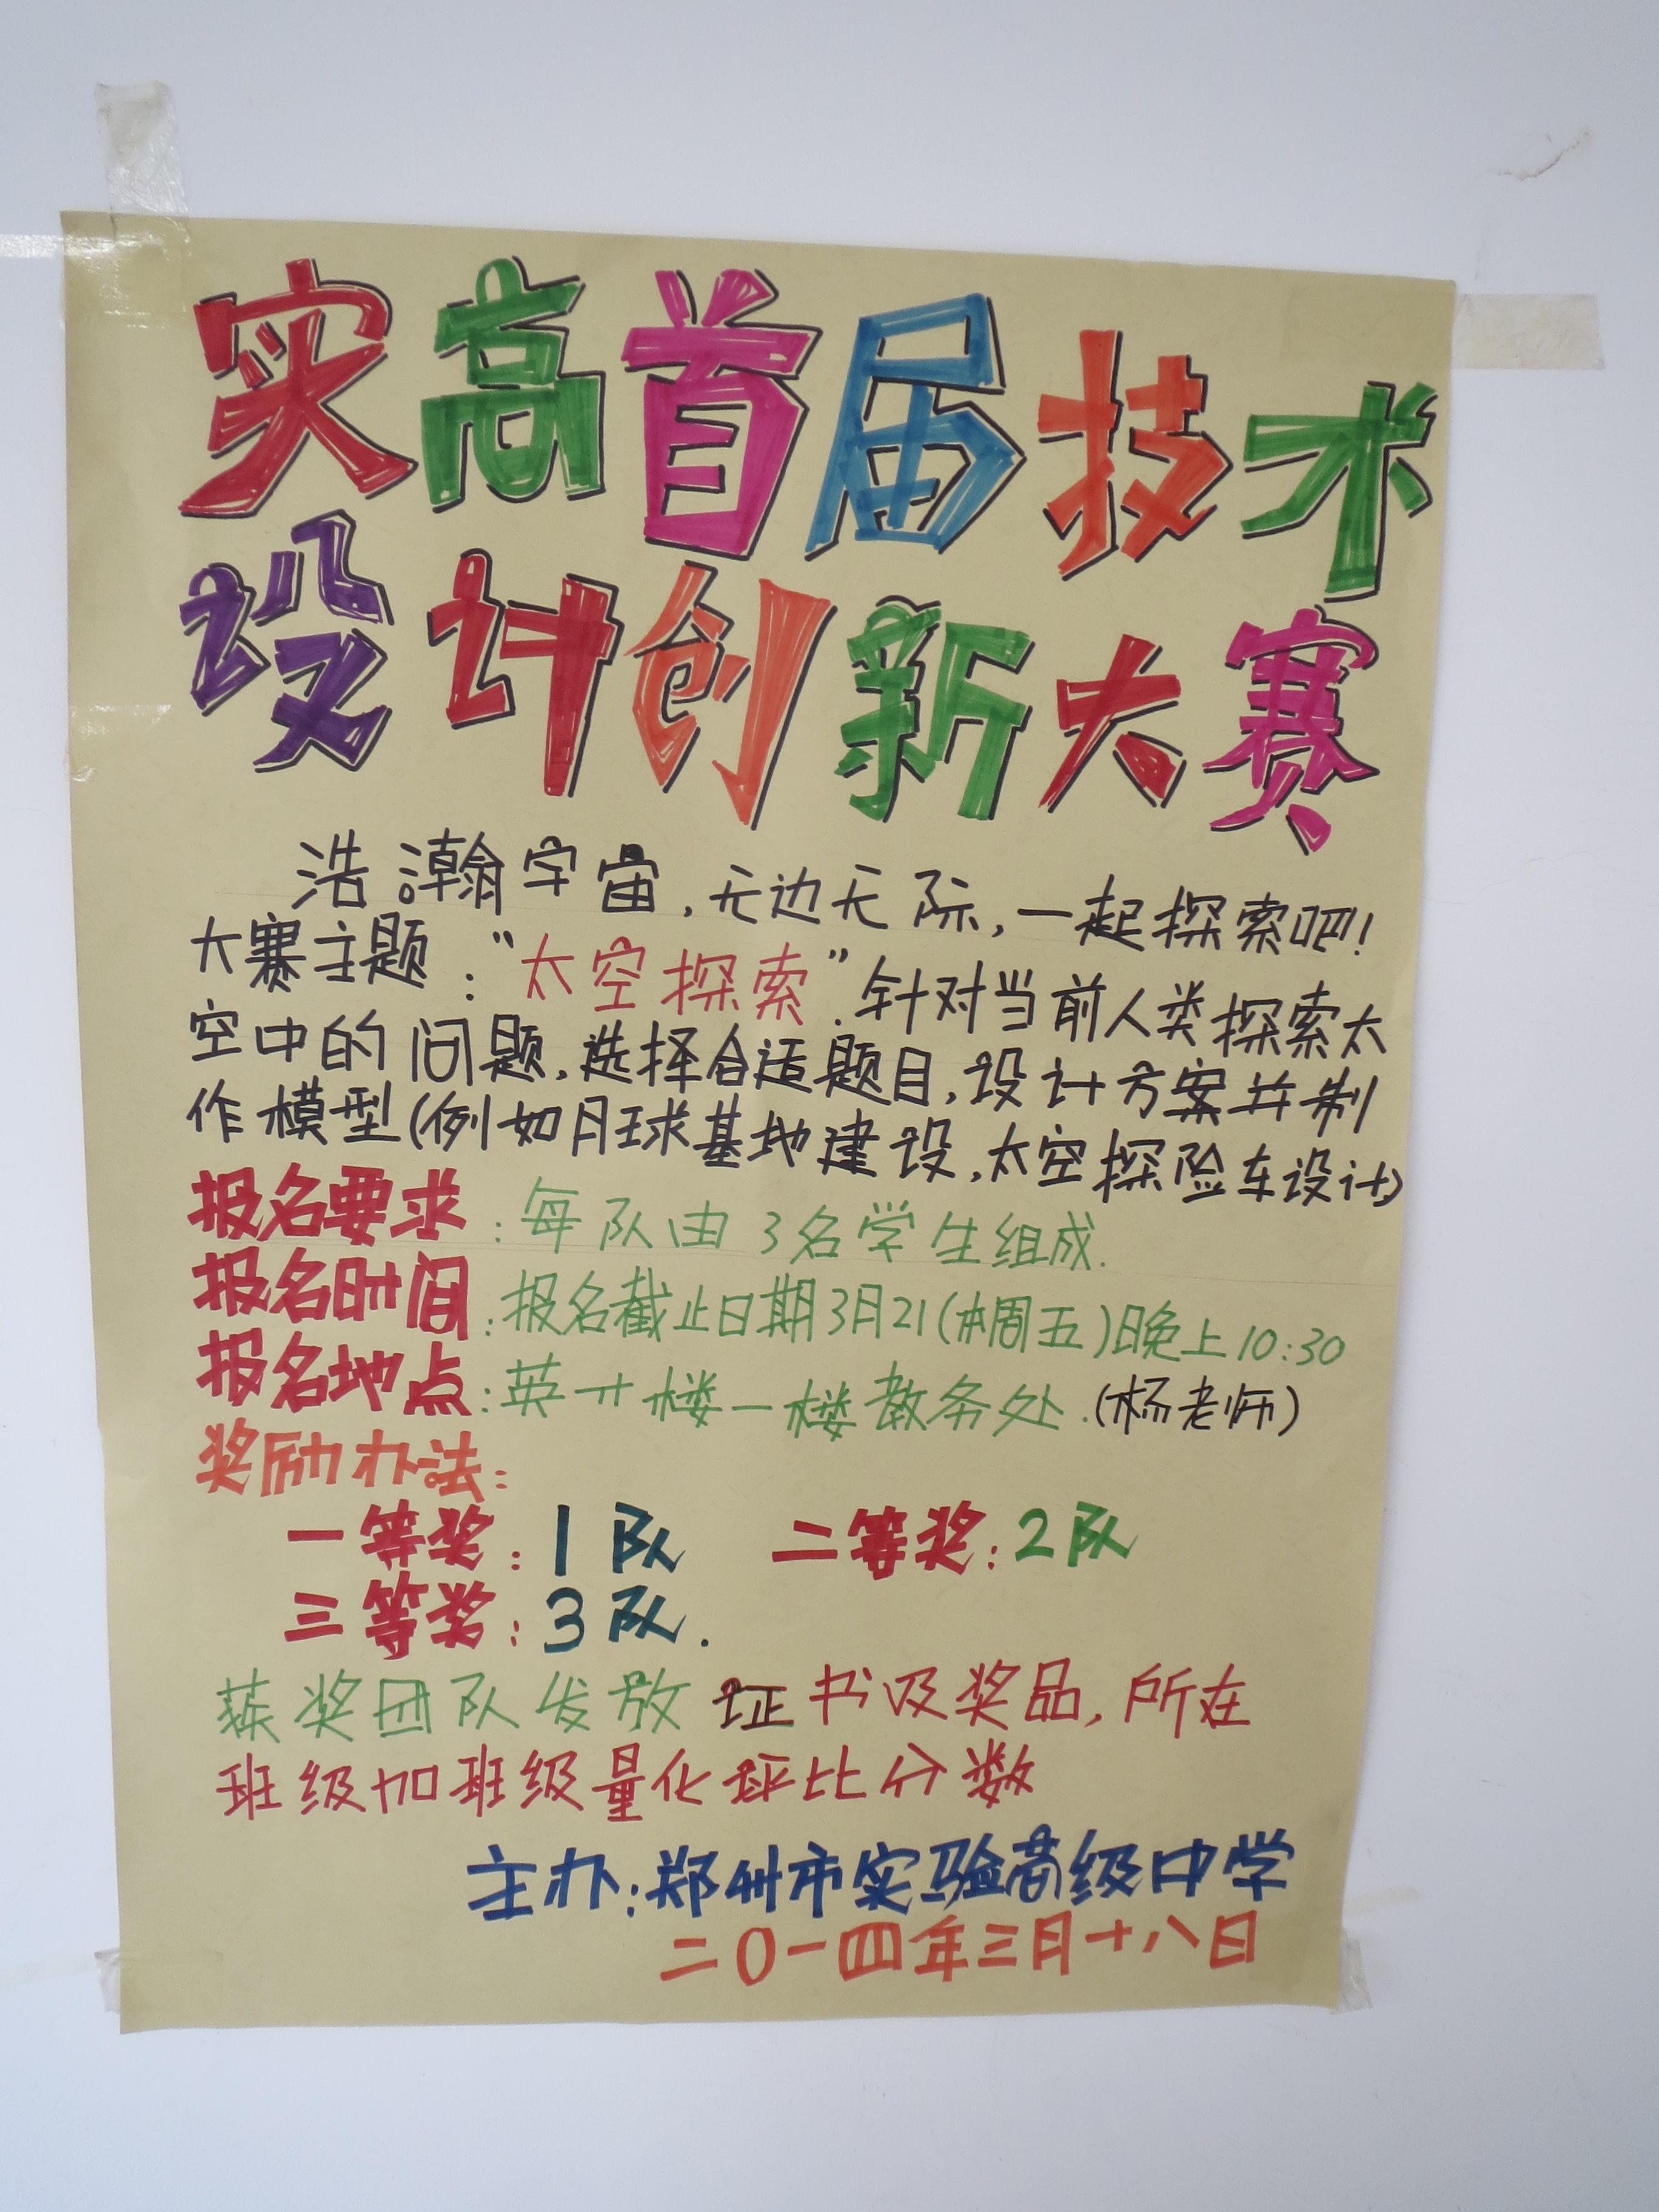 实高首届技术
设计创新大赛
浩瀚宇宙,无边无际,一起探索吧!
大赛主题:“太空探索”.针对当前人类探索太
空中的问题,选择合适题目,设计方案并制
作模型(例如月球基地建设,太空探险车设计)
报名要求:每队由3名学生组成.
报名时间:报名截止日期3月21(本周五)晚上10:30
报名地点:英才楼一楼教务处.(杨老师)
奖励办法:
一等奖:1队 二等奖:2队
三等奖:3队.
获奖团队发放证书及奖品,所在
班级加班级量化评比分数
主办:郑州市实验高级中学
二〇一四年三月十八日